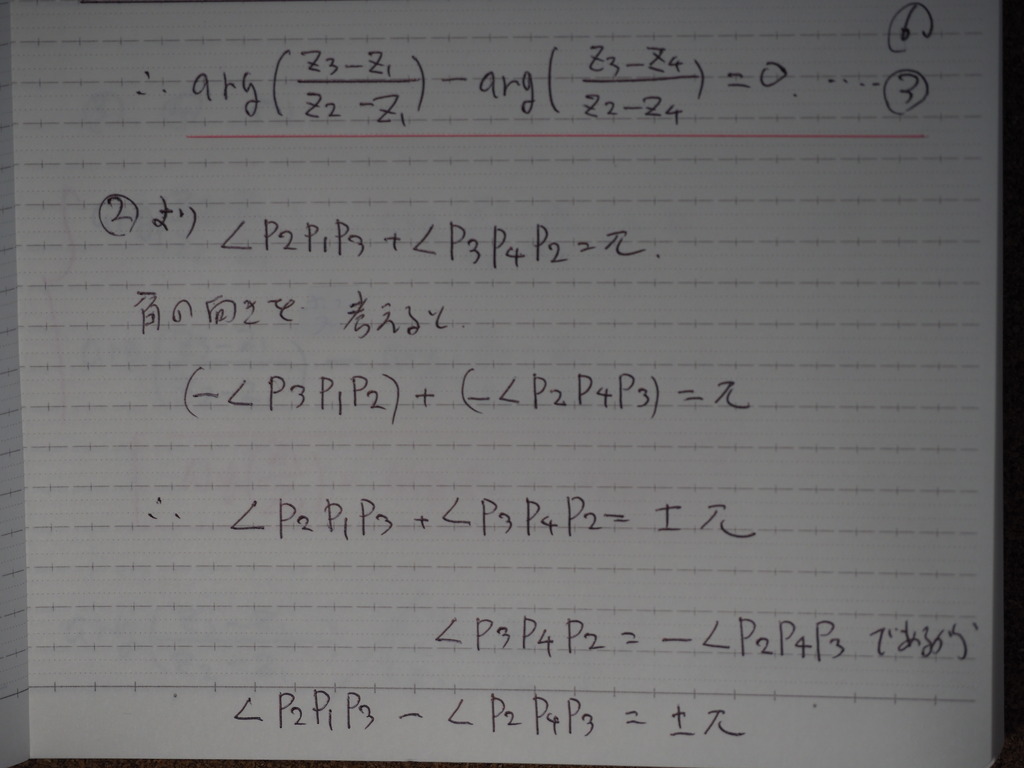 ⑥
∴ arg((z3-z1)/(z2-z1)) - arg((z3-z4)/(z2-z4)) = 0. ····· ③
② より ∠P2P1P3 + ∠P3P4P2 = π.
角の向きを 考えると
(-∠P3P1P2) + (-∠P2P4P3) = π
∴ ∠P2P1P3 + ∠P3P4P2 = ±π
∠P3P4P2 = -∠P2P4P3 であるから
∠P2P1P3 - ∠P2P4P3 = ±π